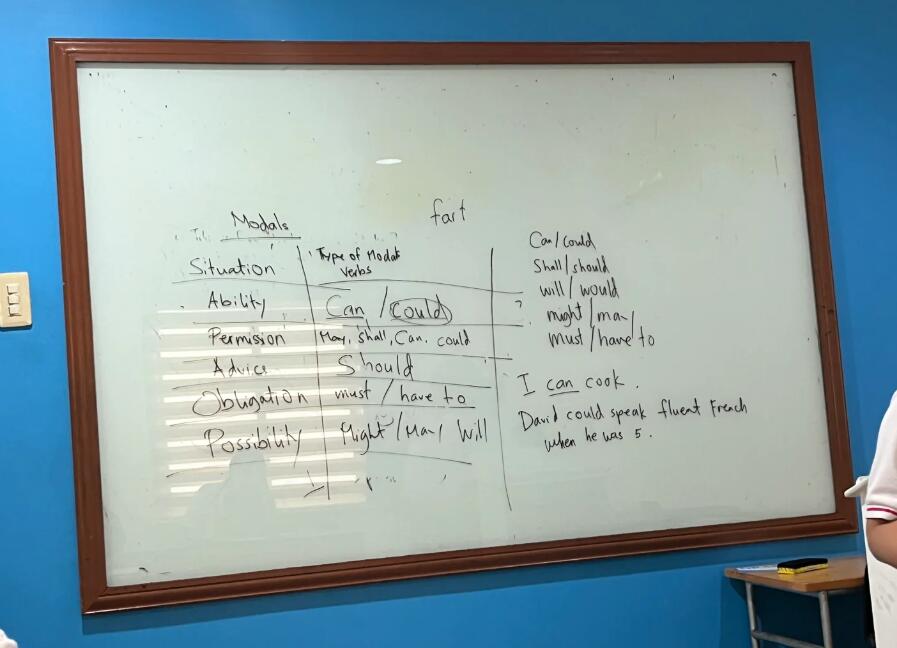 Modals
fart
Situation
Type of Modal
verbs
Ability
Can / could
Permission
May, shall, Can, could
Advice
Should
Obligation
must / have to
Possibility
Might / May / Will
Can / could
Shall / should
will / would
might / may
must / have to
I can cook.
David could speak fluent French
when he was 5.